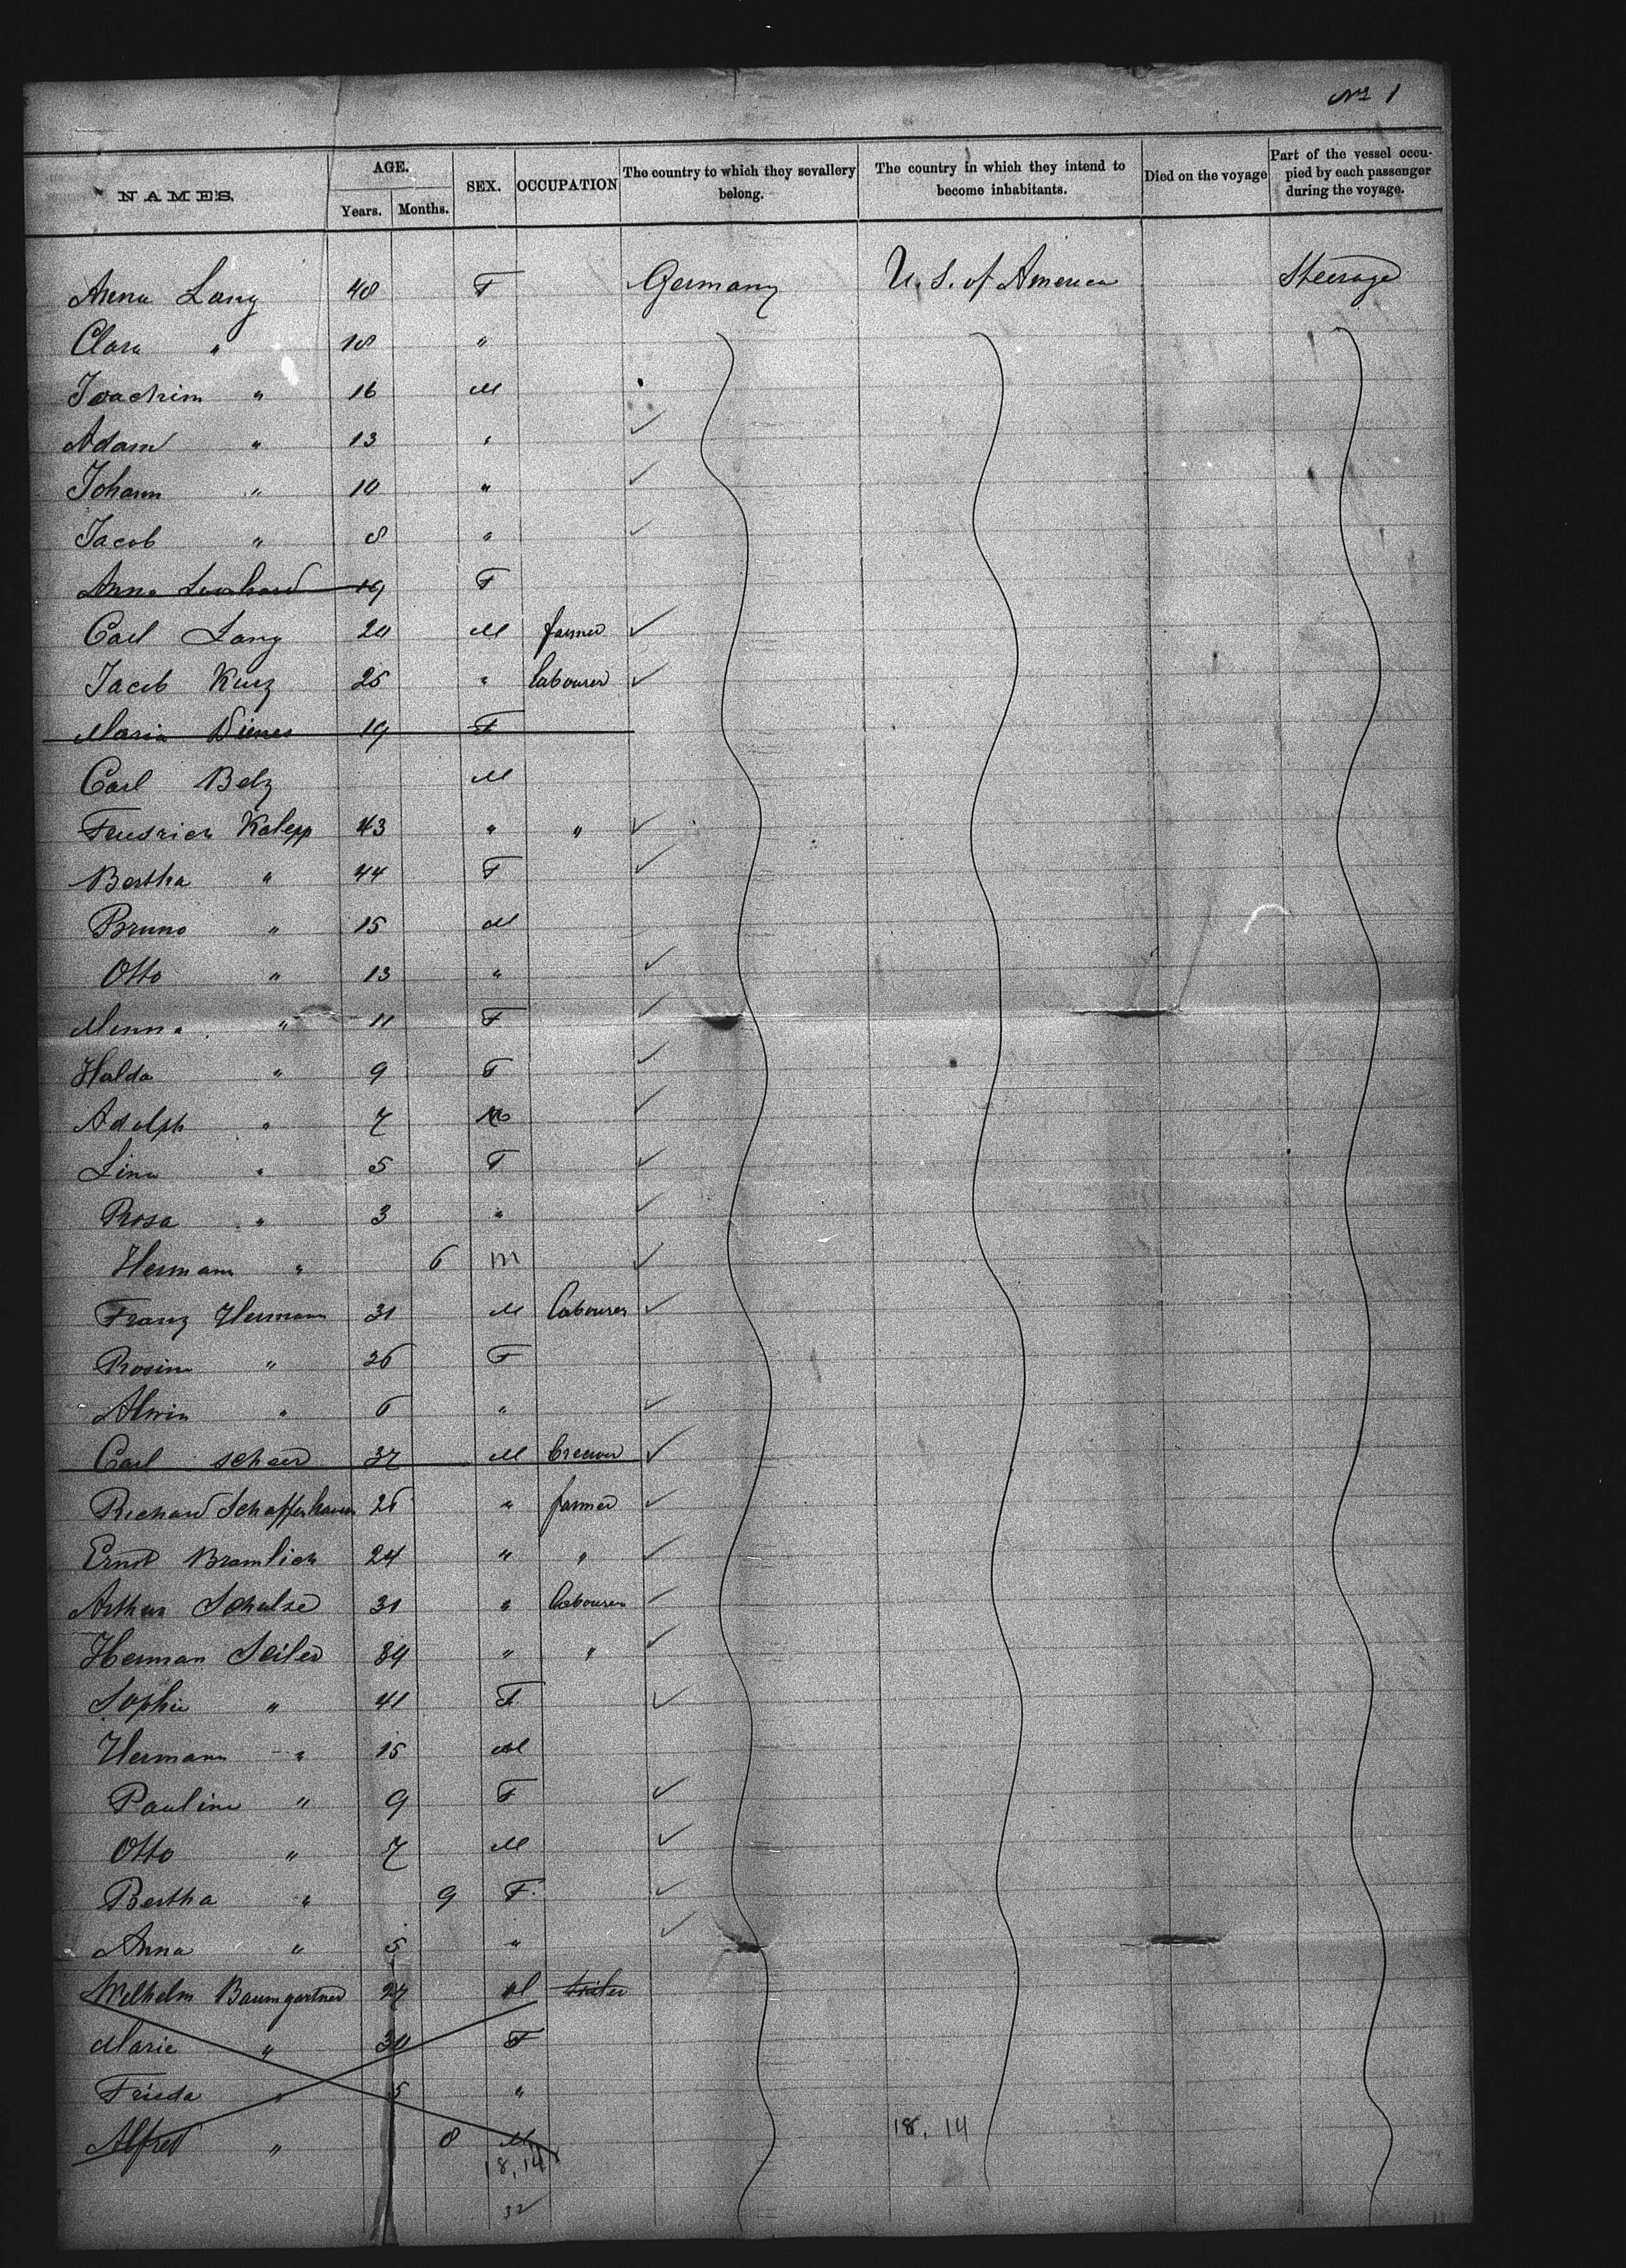 No 1
NAMES. AGE. SEX. OCCUPATION The country to which they sevallery belong. The country in which they intend to become inhabitants. Died on the voyage Part of the vessel occupied by each passenger during the voyage.
Years. Months.
Anna Lang 48 F Germany U. S. of America Steerage
Clara " 18 "
Joachim " 16 M
Adam " 13 "
Johann " 10 "
Jacob " 8 "
Anna Leonhard 19 F
Carl Lang 20 M farmer
Jacob Kurz 25 " labourer
Maria Dienes 19 F
Carl Belz M
Friedrich Kalepp 43 " "
Bertha " 44 F
Bruno " 15 M
Otto " 13 "
Minna " 11 F
Hulda " 9 F
Adolph " 7 M
Lina " 5 F
Rosa " 3 "
Hermann " 6 m
Franz Hermann 31 M labourer
Rosine " 26 F
Alwin " 6 "
Carl Schaer 37 M brewer
Richard Schaffenhauer 26 " farmer
Ernst Bramlich 24 " "
Arthur Schulze 31 " labourer
Herman Seiler 39 " "
Sophie " 41 F
Hermann " 15 M
Pauline " 9 F
Otto " 7 M
Bertha " 9 F
Anna " 5 "
Wilhelm Baumgartner 27 M
Marie " 30 F
Frieda " 5 "
Alfred " 8 M 18, 14
18, 14
32